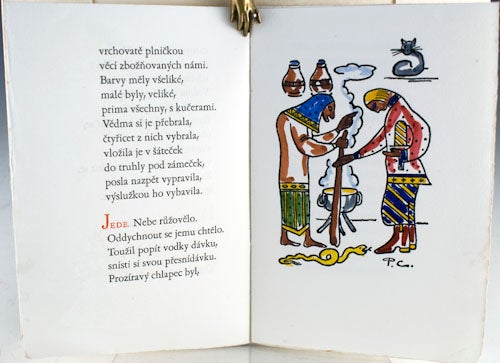 vrchovatě plničkou
věcí zbožňovaných námi.
Barvy měly všeliké,
malé byly, veliké,
prima všechny, s kučerami.
Vědma si je přebrala,
čtyřicet z nich vybrala,
vložila je v šáteček
do truhly pod zámeček,
posla nazpět vypravila,
výslužkou ho vybavila.
JEDE. Nebe růžovělo.
Oddychnout se jemu chtělo.
Toužil popít vodky dávku,
snísti si svou přesnídávku.
Prozíravý chlapec byl,
P.C.